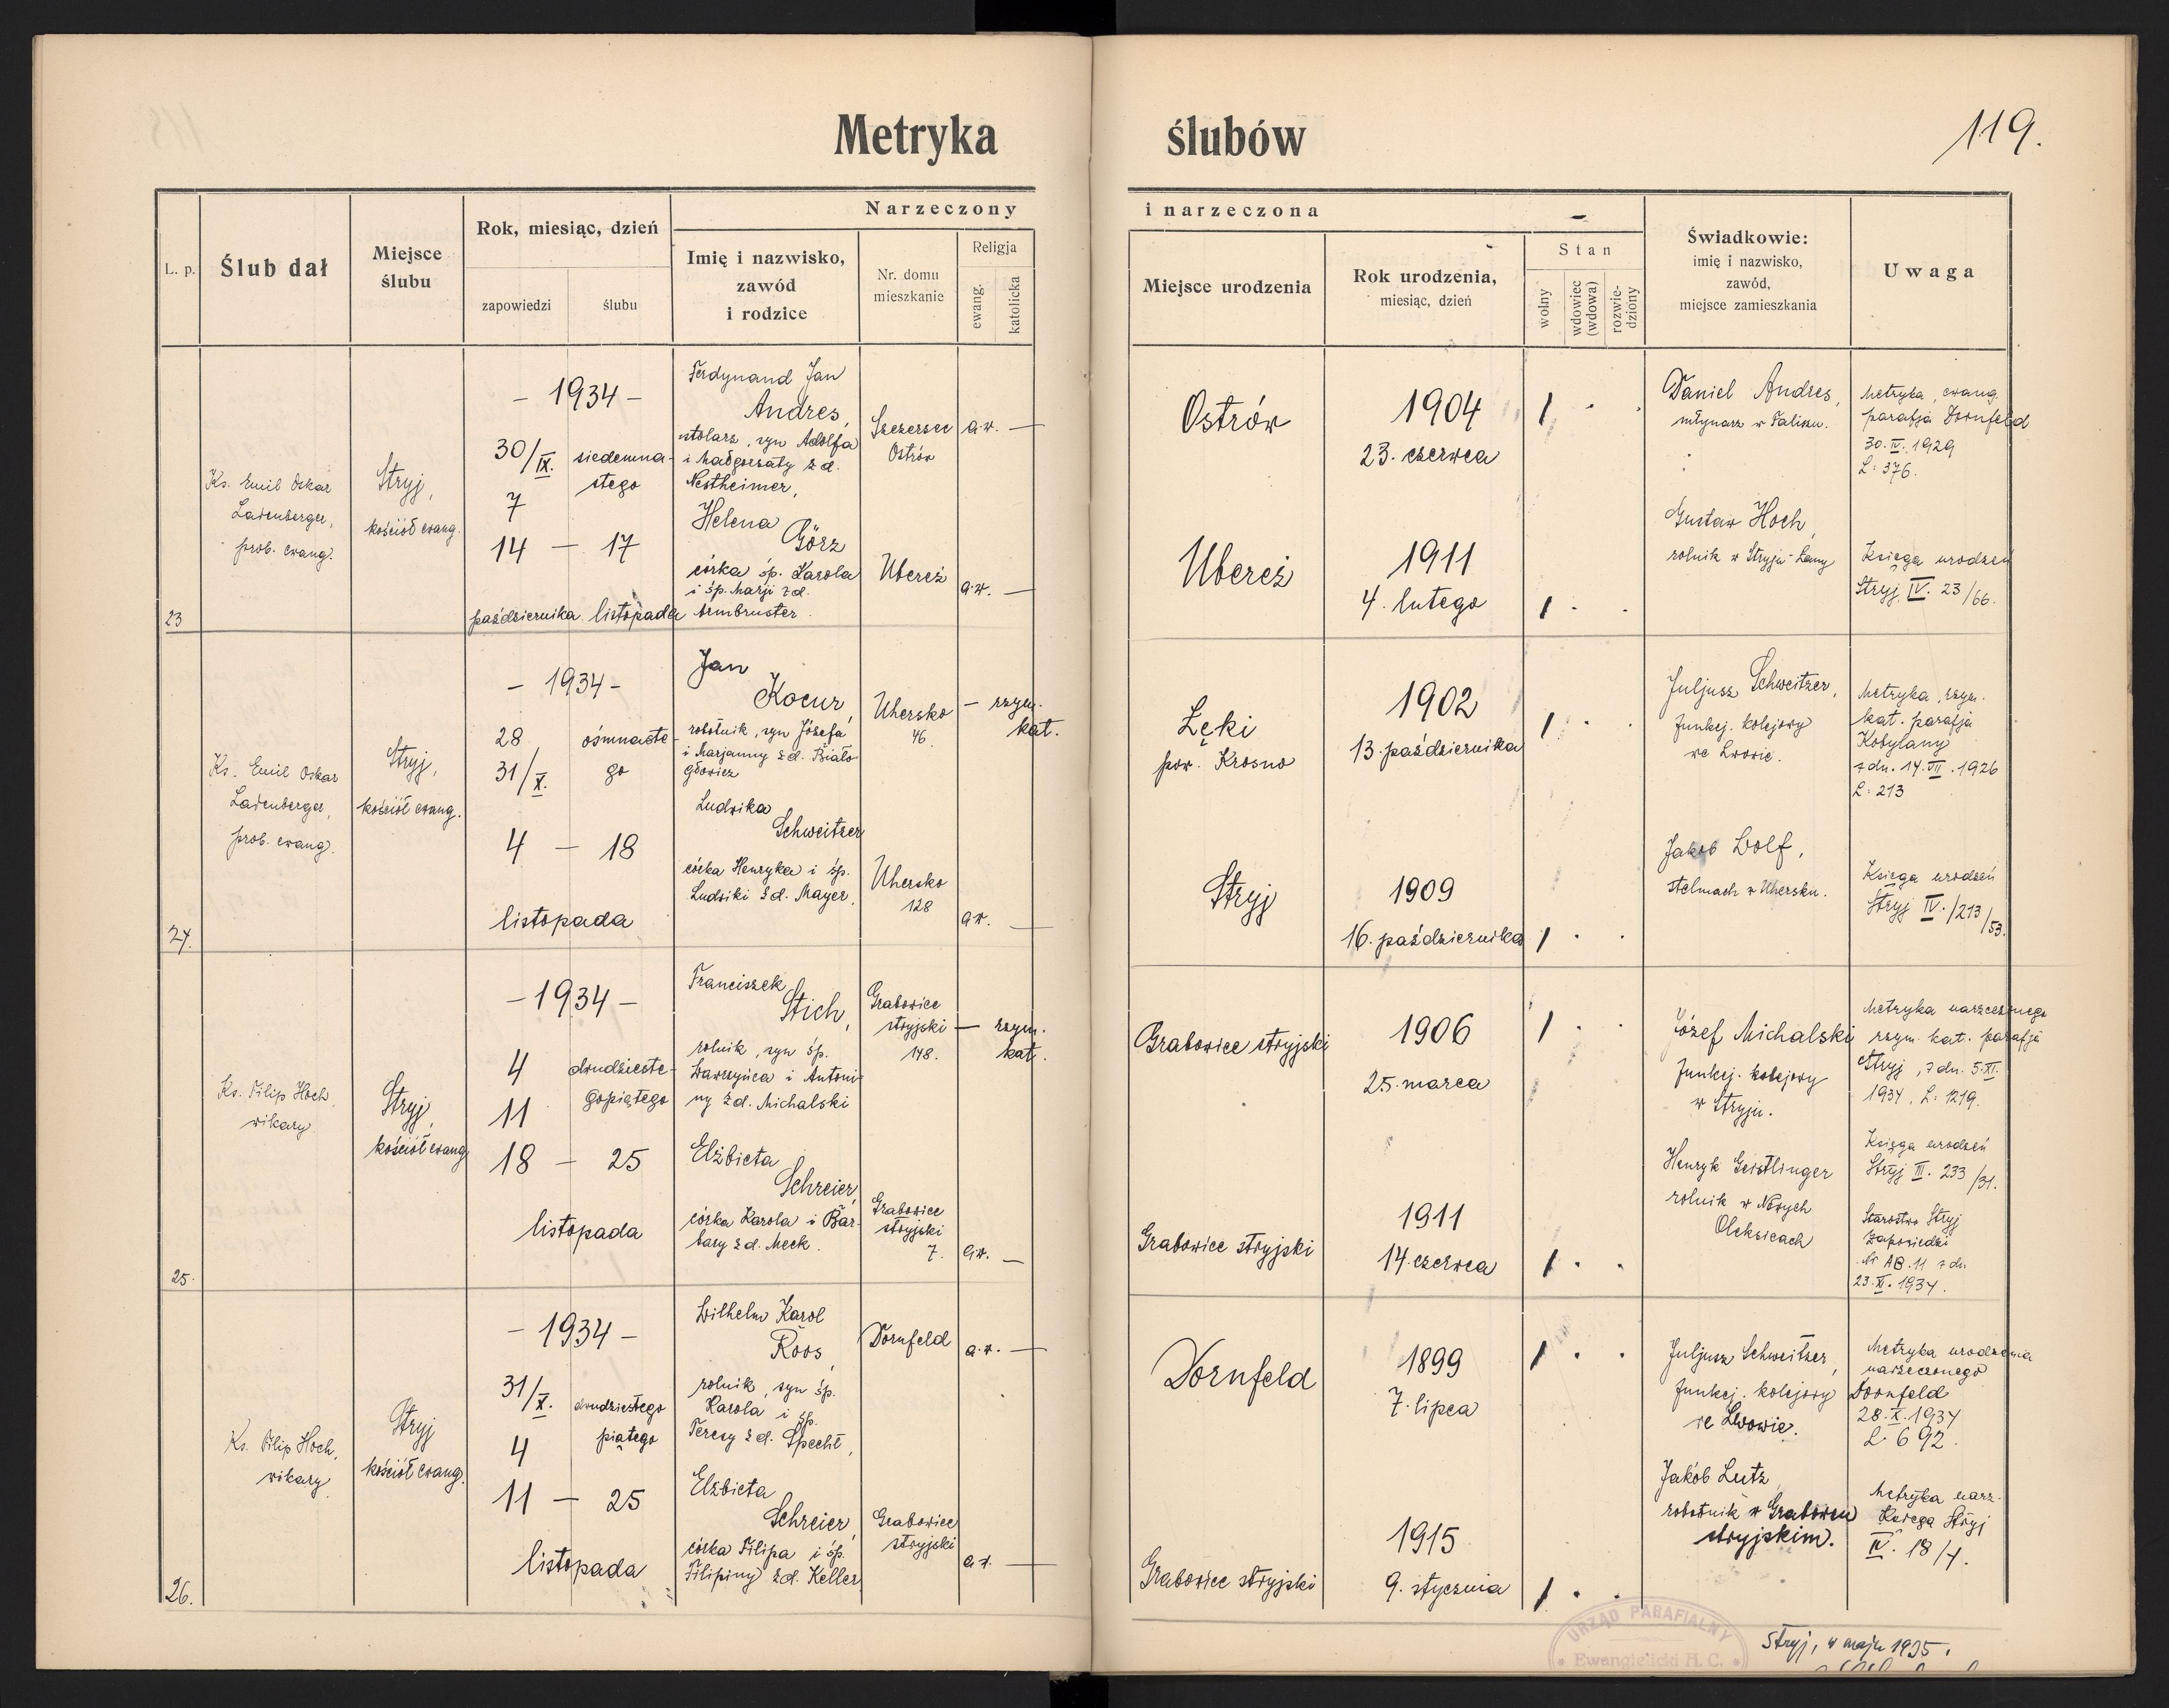 Metryka ślubów
119.
Narzeczony i narzeczona
L. p.
Ślub dał
Miejsce
ślubu
Rok, miesiąc, dzień
zapowiedzi
ślubu
Imię i nazwisko,
zawód
i rodzice
Nr. domu
mieszkanie
Religja
ewang.
katolicka
Miejsce urodzenia
Rok urodzenia,
miesiąc, dzień
Stan
wolny
wdowiec
(wdowa)
rozwie-
dziony
Świadkowie:
imię i nazwisko,
zawód,
miejsce zamieszkania
Uwaga
23
Ks. Emil Oskar
Ladenberger,
prob. ewang.
Stryj,
kościół ewang.
- 1934 -
30/IX.
7
14 —
października
siedemna-
stego
17
listopada
Ferdynand Jan
Andres,
stolarz, syn Adolfa
i Małgorzaty z d.
Nestheimer,
Szczerzec
Ostrów
a.w. —
Helena
Görz
córka śp. Karola
i śp. Marji z d.
Armbruster.
Ubereż
a.w. —
Ostrów
1904
23. czerwca
Ubereż
1911
4. lutego
Daniel Andres,
młynarz w
Gustaw Hoch,
rolnik w Stryju-Łany
Metryka ewang.
parafja Dornfeld
30. IV. 1929
L: 376.
Księga urodzeń
Stryj IV. 23/66.
24.
Ks. Emil Oskar
Ladenberger,
prob. ewang.
Stryj,
kościół ewang.
- 1934 -
28
31/X.
4 — 18
listopada
ośmnaste-
go
Jan
Kocur,
robotnik, syn Józefa
i Marjanny z d. Biało-
głowicz
Uhersko
46.
— rzym.
kat.
Ludwika
Schweitzer
córka Henryka i śp.
Ludwiki z d. Mayer,
Uhersko
128
a.w. —
Łęki
pow. Krosno
1902
13. października
Stryj
1909
16. października
Juljusz Schweitzer,
funkcj. kolejowy
we Lwowie.
Jakób Wolf,
stelmach w Uhersku.
Metryka, rzym.
kat. parafja
Kobylany
z dn. 14. VII. 1926
L: 213
Księga urodzeń
Stryj IV./213/53.
25.
Ks. Filip Hoch,
wikary.
Stryj,
kościół ewang.
- 1934 -
4
11
18 — 25
listopada
dwudzieste-
gopiątego
Franciszek
Stich,
rolnik, syn śp.
Wawrzyńca i Antoni-
ny z d. Michalski
Grabowice
stryjski
148.
— rzym.
kat.
Elżbieta
Schreier,
córka Karola i Bar-
bary z d. Meck.
Grabowice
stryjski
7.
a.w. —
Grabowice stryjski
1906
25. marca
Grabowice stryjski
1911
14. czerwca
Józef Michalski
funkcj. kolejowy
w Stryju.
Henryk Geistlinger
rolnik w Nowych
Oleksicach
Metryka narzeczonego
rzym. kat. parafja
Stryj, z dn. 5. XI.
1934, L: 1219.
Księga urodzeń
Stryj III. 233/31.
Starostwo Stryj
zapowiedzi
Nr AB. 11 z dn.
23. XI. 1934.
26.
Ks. Filip Hoch,
wikary.
Stryj
kościół ewang.
- 1934 -
31/X.
4
11 — 25
listopada
dwudziestego
piątego
Wilhelm Karol
Roos,
rolnik, syn śp.
Karola i śp.
Teresy z d. Specht,
Dornfeld
a.w. —
Elżbieta
Schreier,
córka Filipa i śp.
Filipiny z d. Keller
Grabowice
stryjski
a.w. —
Dornfeld
1899
7. lipca
Grabowice stryjski
1915
9. stycznia
Juljusz Schweitzer,
funkcj. kolejowy
we Lwowie.
Jakób Lutz,
robotnik w Grabowcu
stryjskim.
Metryka urodzenia
narzeczonego
Dornfeld
28. X. 1934
L. 692.
Metryka narz.
Księga Stryj
IV. 18/4.
URZĄD PARAFIALNY
Ewangielicki A. C.
Stryj, 4 maja 1935.